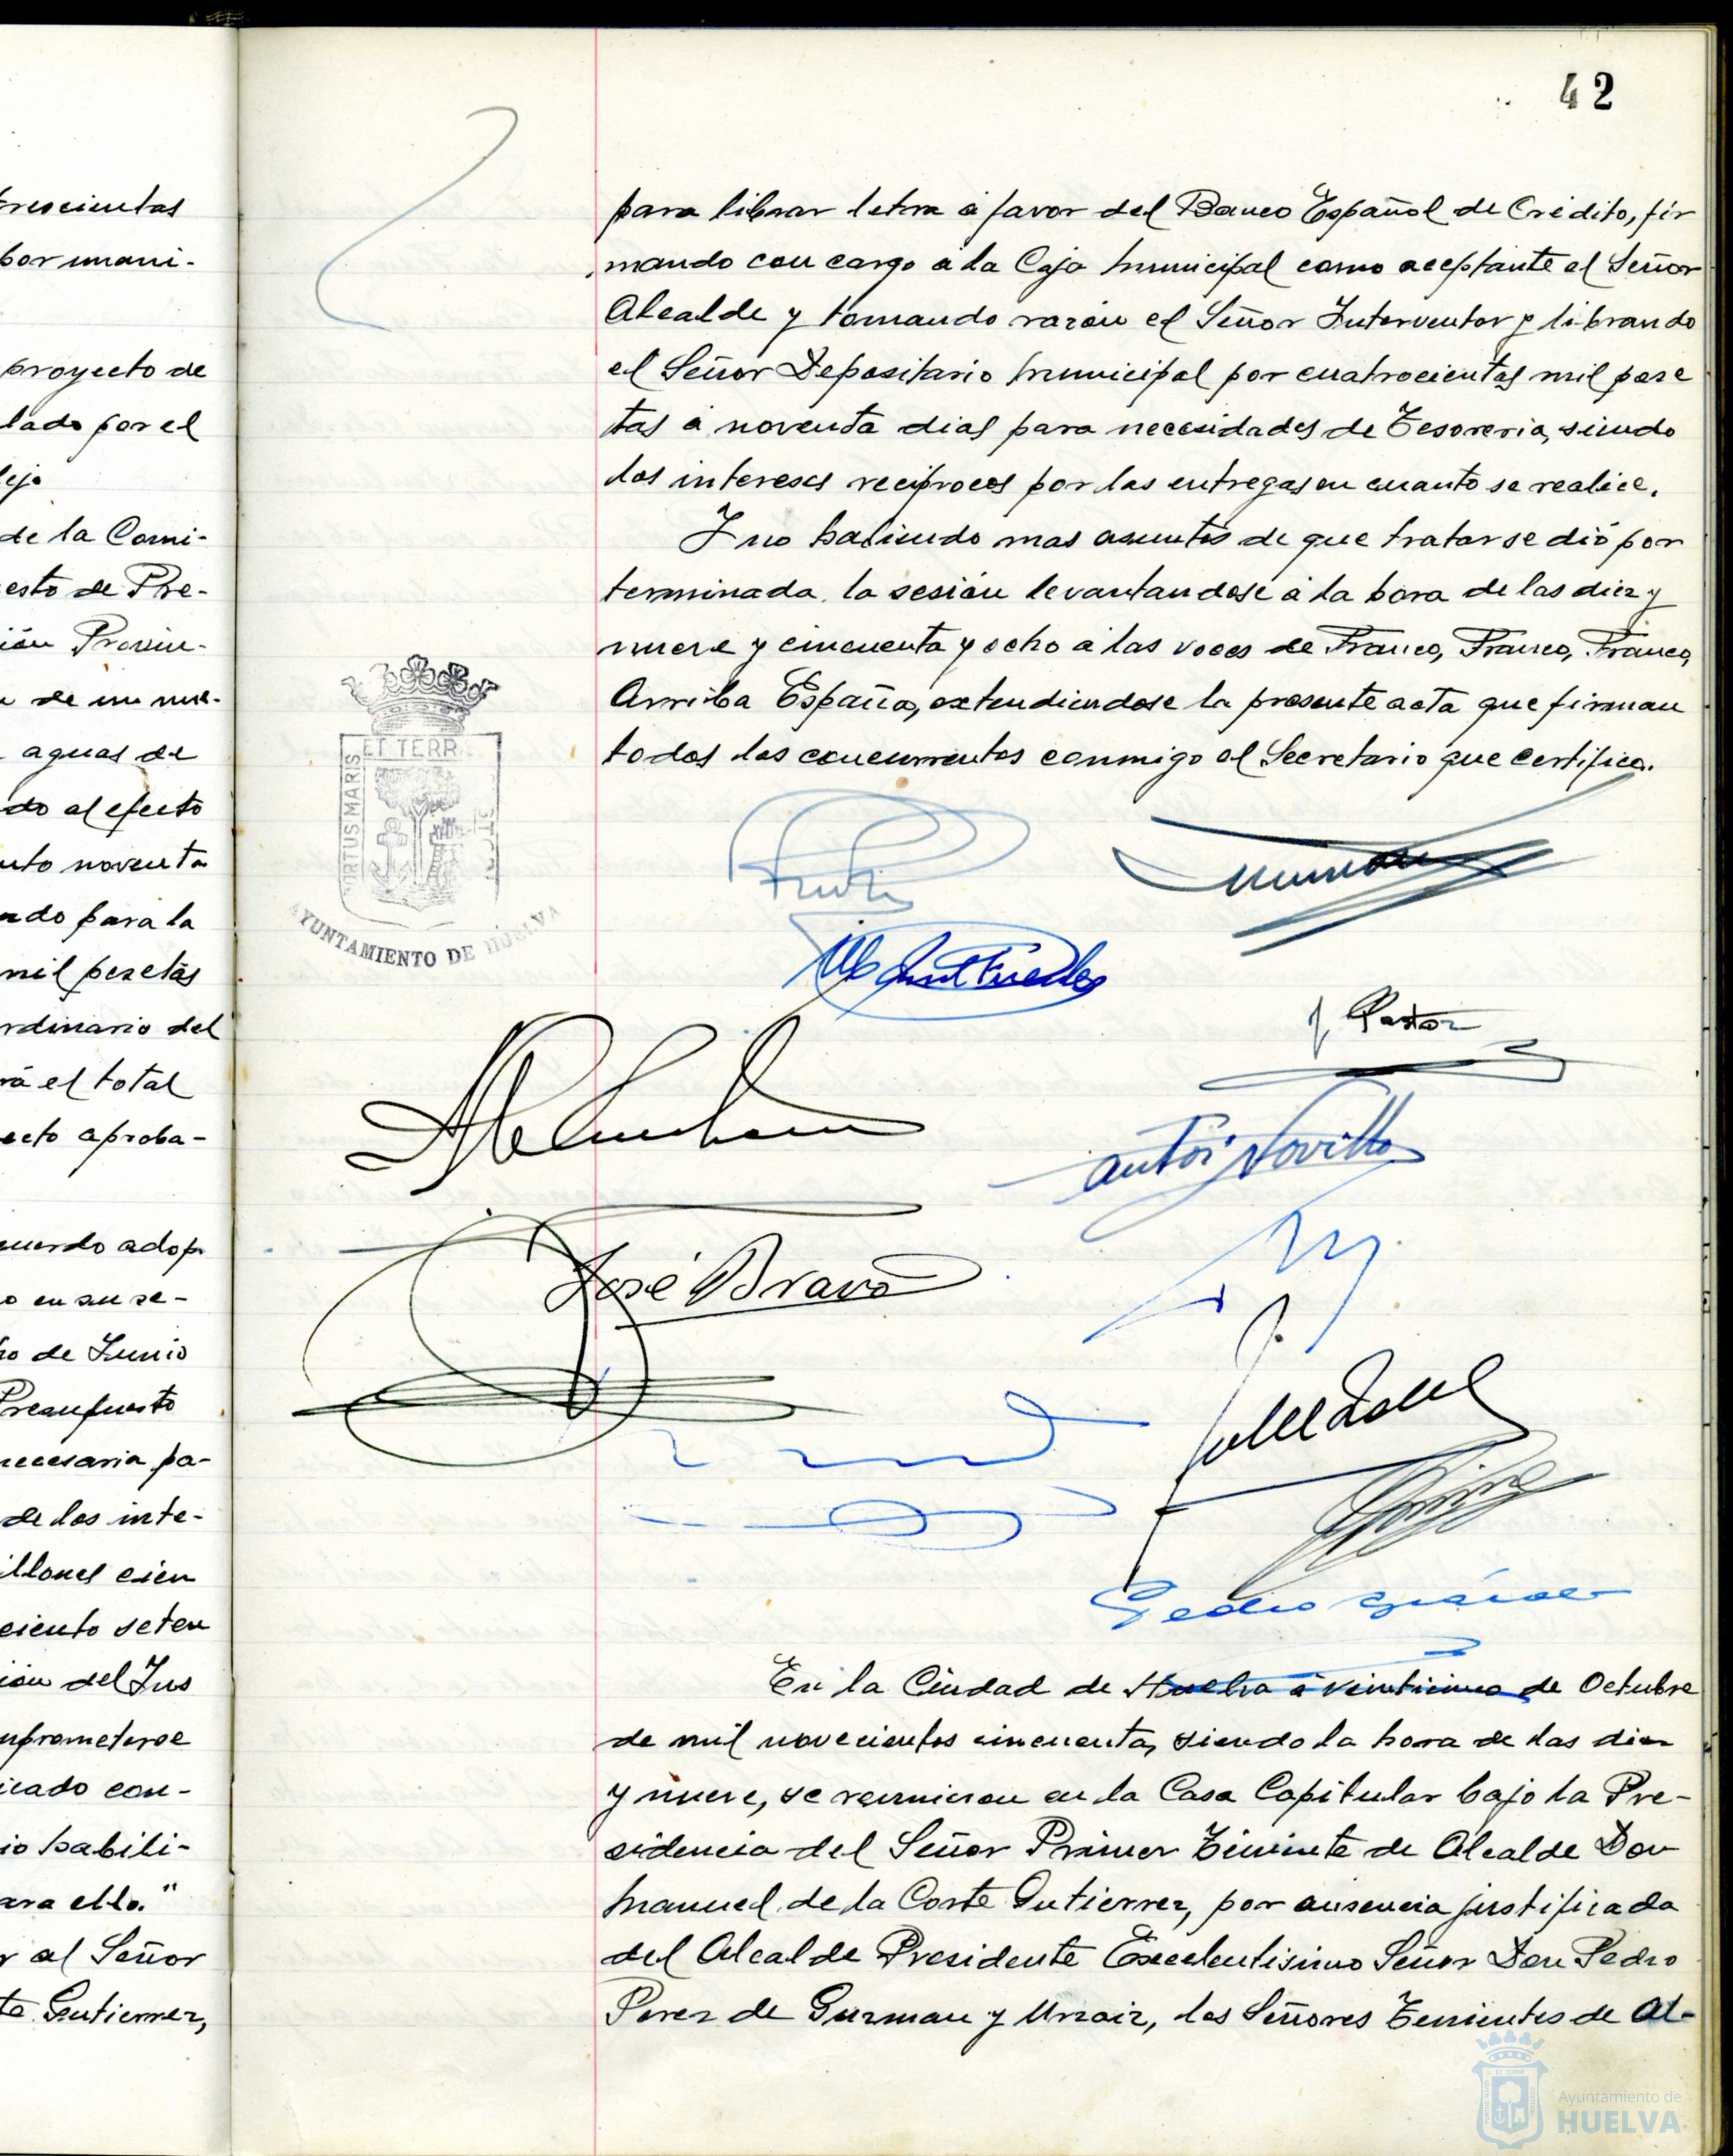 trescientas
por unani-
proyecto de
lado por el
de la Comi-
esto de Pre-
ión Provin-
aguas de
do al efecto
noventa
ndo para la
mil pesetas
rdinario del
rá el total
ecto aproba-
uerdo adop
o en su se-
de Junio
Presupuesto
necesaria pa-
de los inte-
illones cien
ciento seten
ión del Ins
mprometerse
icado con-
io habili-
ara ello."
r al Señor
te Gutierrez,
42
para librar letra á favor del Banco Español de Crédito, fir
mando con cargo a la Caja Municipal como aceptante el Señor
Alcalde y tomando razón el Señor Interventor y librando
el Señor Depositario Municipal por cuatrocientas mil pese
tas á noventa dias para necesidades de Tesoreria, siendo
los intereses reciprocos por las entregas en cuanto se realice.
Y no habiendo mas asuntos de que tratar se dió por
terminada la sesión levantandose á la hora de las diez y
nueve y cincuenta y ocho a las voces de Franco, Franco, Franco,
Arriba España, extendiendose la presente acta que firman
todos los concurrentes conmigo el Secretario que certifico.
ET TERR
PORTUS MARIS
AYUNTAMIENTO DE HUELVA
J. Pastor
José Bravo
En la Ciudad de Huelva á veinticinco de Octubre
de mil novecientos cincuenta, siendo la hora de las diez
y nueve, se reunieron en la Casa Capitular bajo la Pre-
sidencia del Señor Primer Teniente de Alcalde Don
Manuel de la Corte Gutierrez, por ausencia justificada
del Alcalde Presidente Excelentisimo Señor Don Pedro
Perez de Guzman y Urzaiz, los Señores Tenientes de Al-
Ayuntamiento de
HUELVA